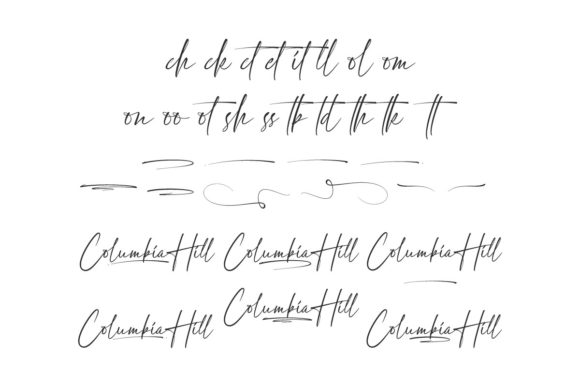 ch ck ct et it ll ol om
on oo ot sh ss tb td th tk tt
Columbia Hill Columbia Hill Columbia Hill
Columbia Hill Columbia Hill Columbia Hill